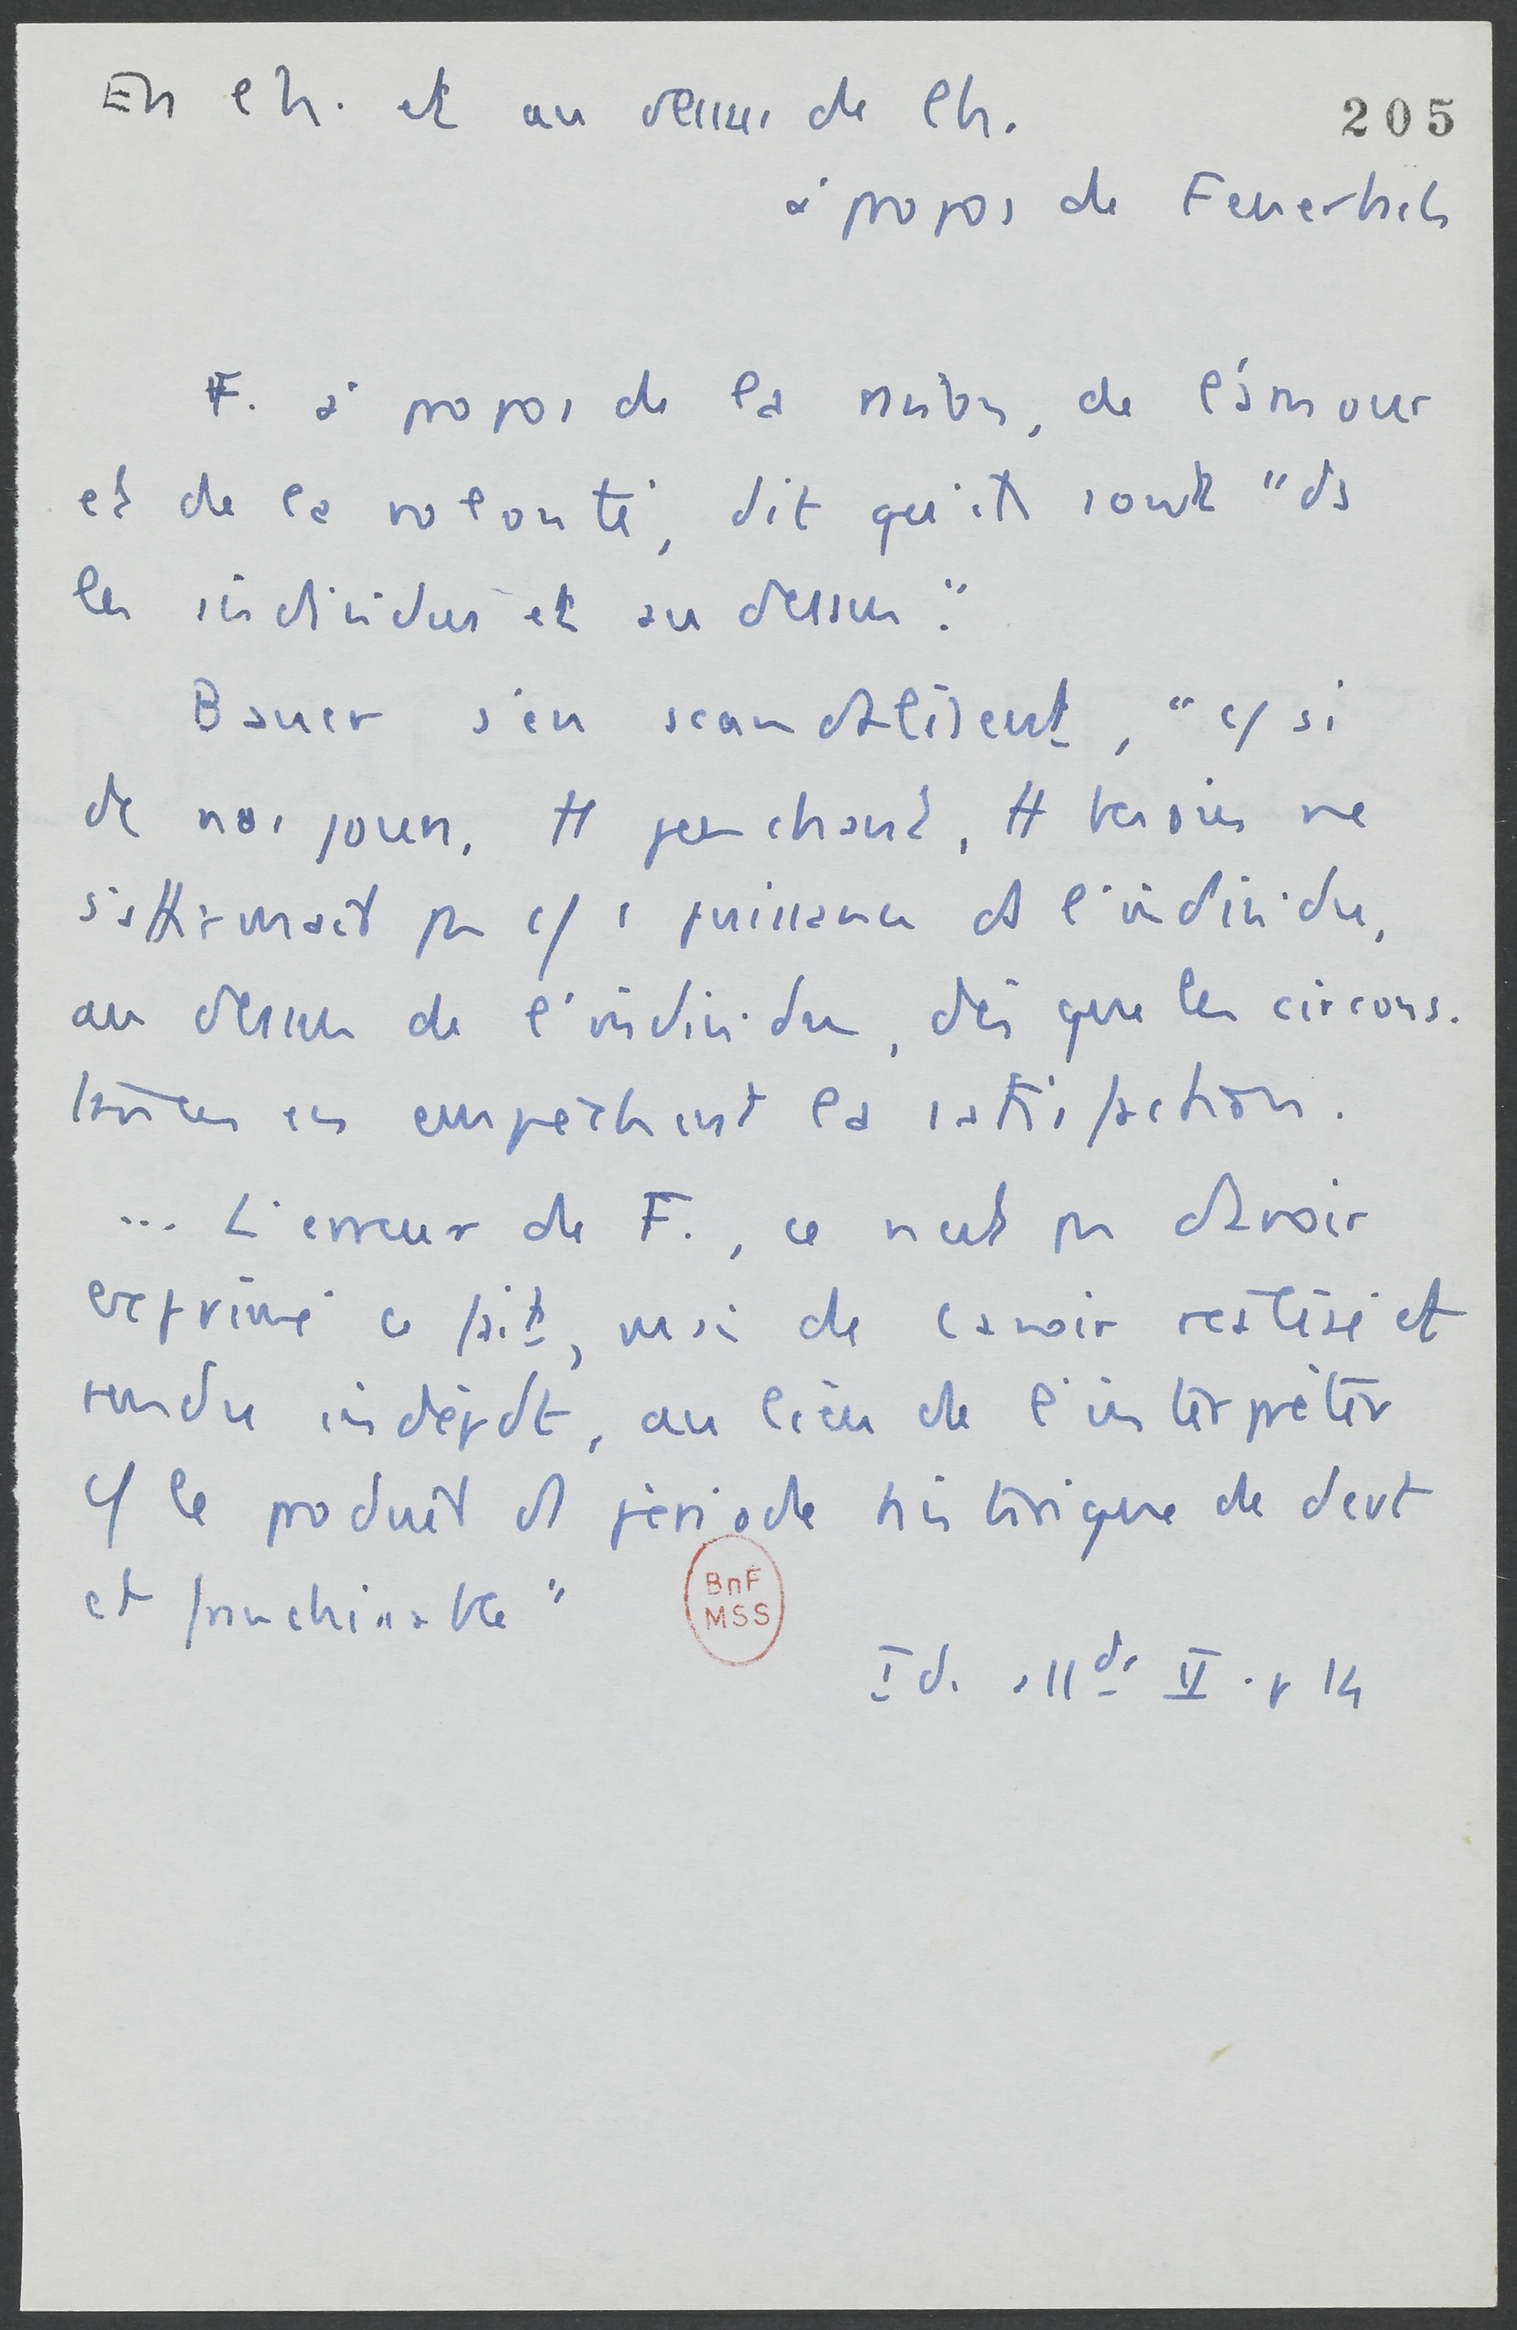 En ch. et au dessus de ch.
205
à propos de Feuerbach
F. à propos de la raison, de l'amour
et de la volonté, dit qu'ils sont "ds
les individus et au dessus".
Bauer s'en scandalisent, "c/ si
de nos jours, tt penchant, tt besoin ne
s'affirmait pas c/ 1 puissance ds l'individu,
au dessus de l'individu, dès que les circons-
tances en empêchent la satisfaction.
... L'erreur de F., ce n'est pas d'avoir
exprimé ce fait, mais de l'avoir réalisé et
rendu indépdt, au lieu de l'interpréter
c/ le produit d période historique de devt
et franchissable"
BnF
MSS
Id. allde II. p 14